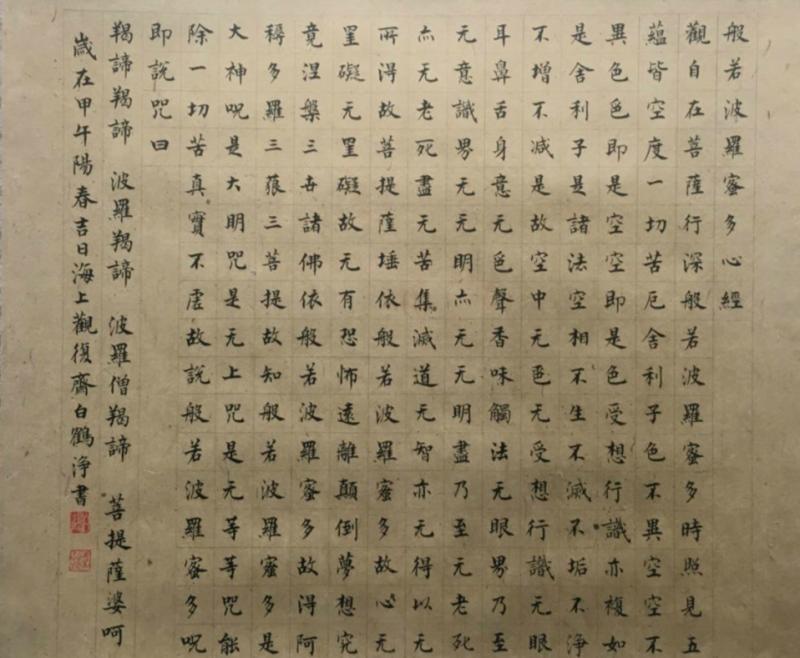 般若波羅蜜多心經
觀自在菩薩行深般若波羅蜜多時照見五
蘊皆空度一切苦厄舍利子色不異空空不
異色色即是空空即是色受想行識亦複如
是舍利子是諸法空相不生不滅不垢不淨
不增不减是故空中无色无受想行識无眼
耳鼻舌身意无色聲香味觸法无眼界乃至
无意識界无无明亦无无明盡乃至无老死
亦无老死盡无苦集滅道无智亦无得以无
所得故菩提薩埵依般若波羅蜜多故心无
罣礙无罣礙故无有恐怖遠離顛倒夢想究
竟涅槃三世諸佛依般若波羅蜜多故得阿
耨多羅三藐三菩提故知般若波羅蜜多是
大神呪是大明咒是无上咒是无等等咒能
除一切苦真實不虛故說般若波羅蜜多呪
即說咒曰
羯諦羯諦 波羅羯諦 波羅僧羯諦 菩提薩婆呵
歲在甲午陽春吉日海上觀復齋白鶴淨書